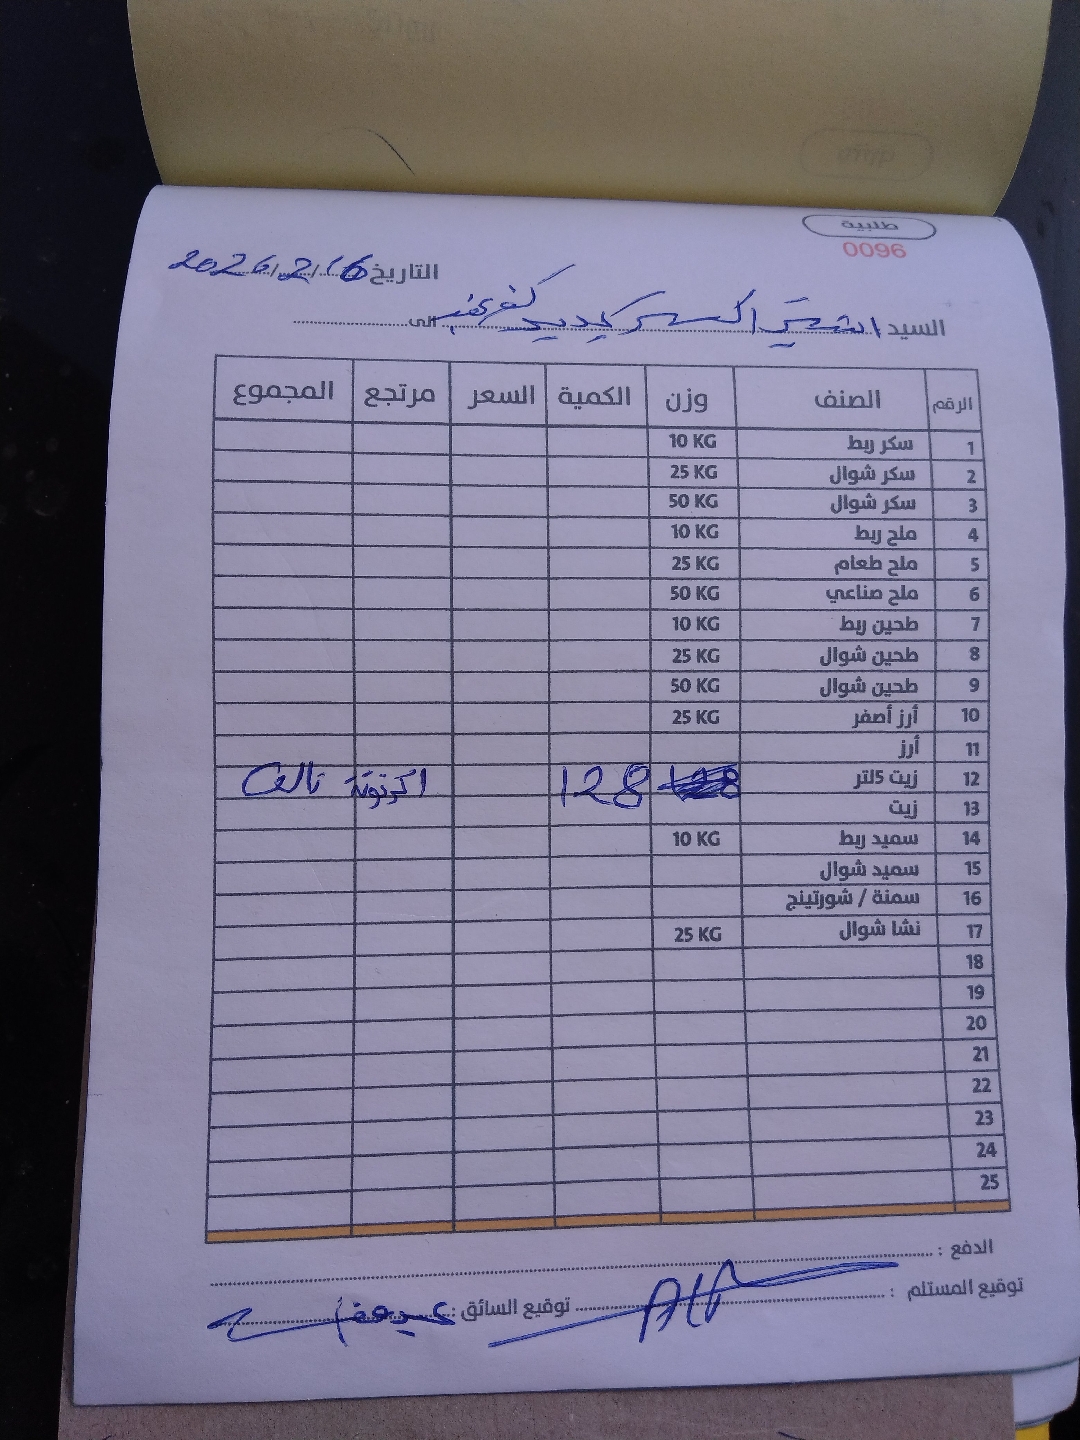 طلبية
0096
التاريخ 2026/2/16
السيد الى
الرقم الصنف وزن الكمية السعر مرتجع المجموع
1 سكر ربط 10 KG
2 سكر شوال 25 KG
3 سكر شوال 50 KG
4 ملح ربط 10 KG
5 ملح طعام 25 KG
6 ملح صناعي 50 KG
7 طحين ربط 10 KG
8 طحين شوال 25 KG
9 طحين شوال 50 KG
10 أرز أصفر 25 KG
11 أرز
12 زيت 5لتر 128 1كرتونة تالف
13 زيت
14 سميد ربط 10 KG
15 سميد شوال
16 سمنة / شورتينج
17 نشا شوال 25 KG
18
19
20
21
22
23
24
25
الدفع :
توقيع المستلم : توقيع السائق :